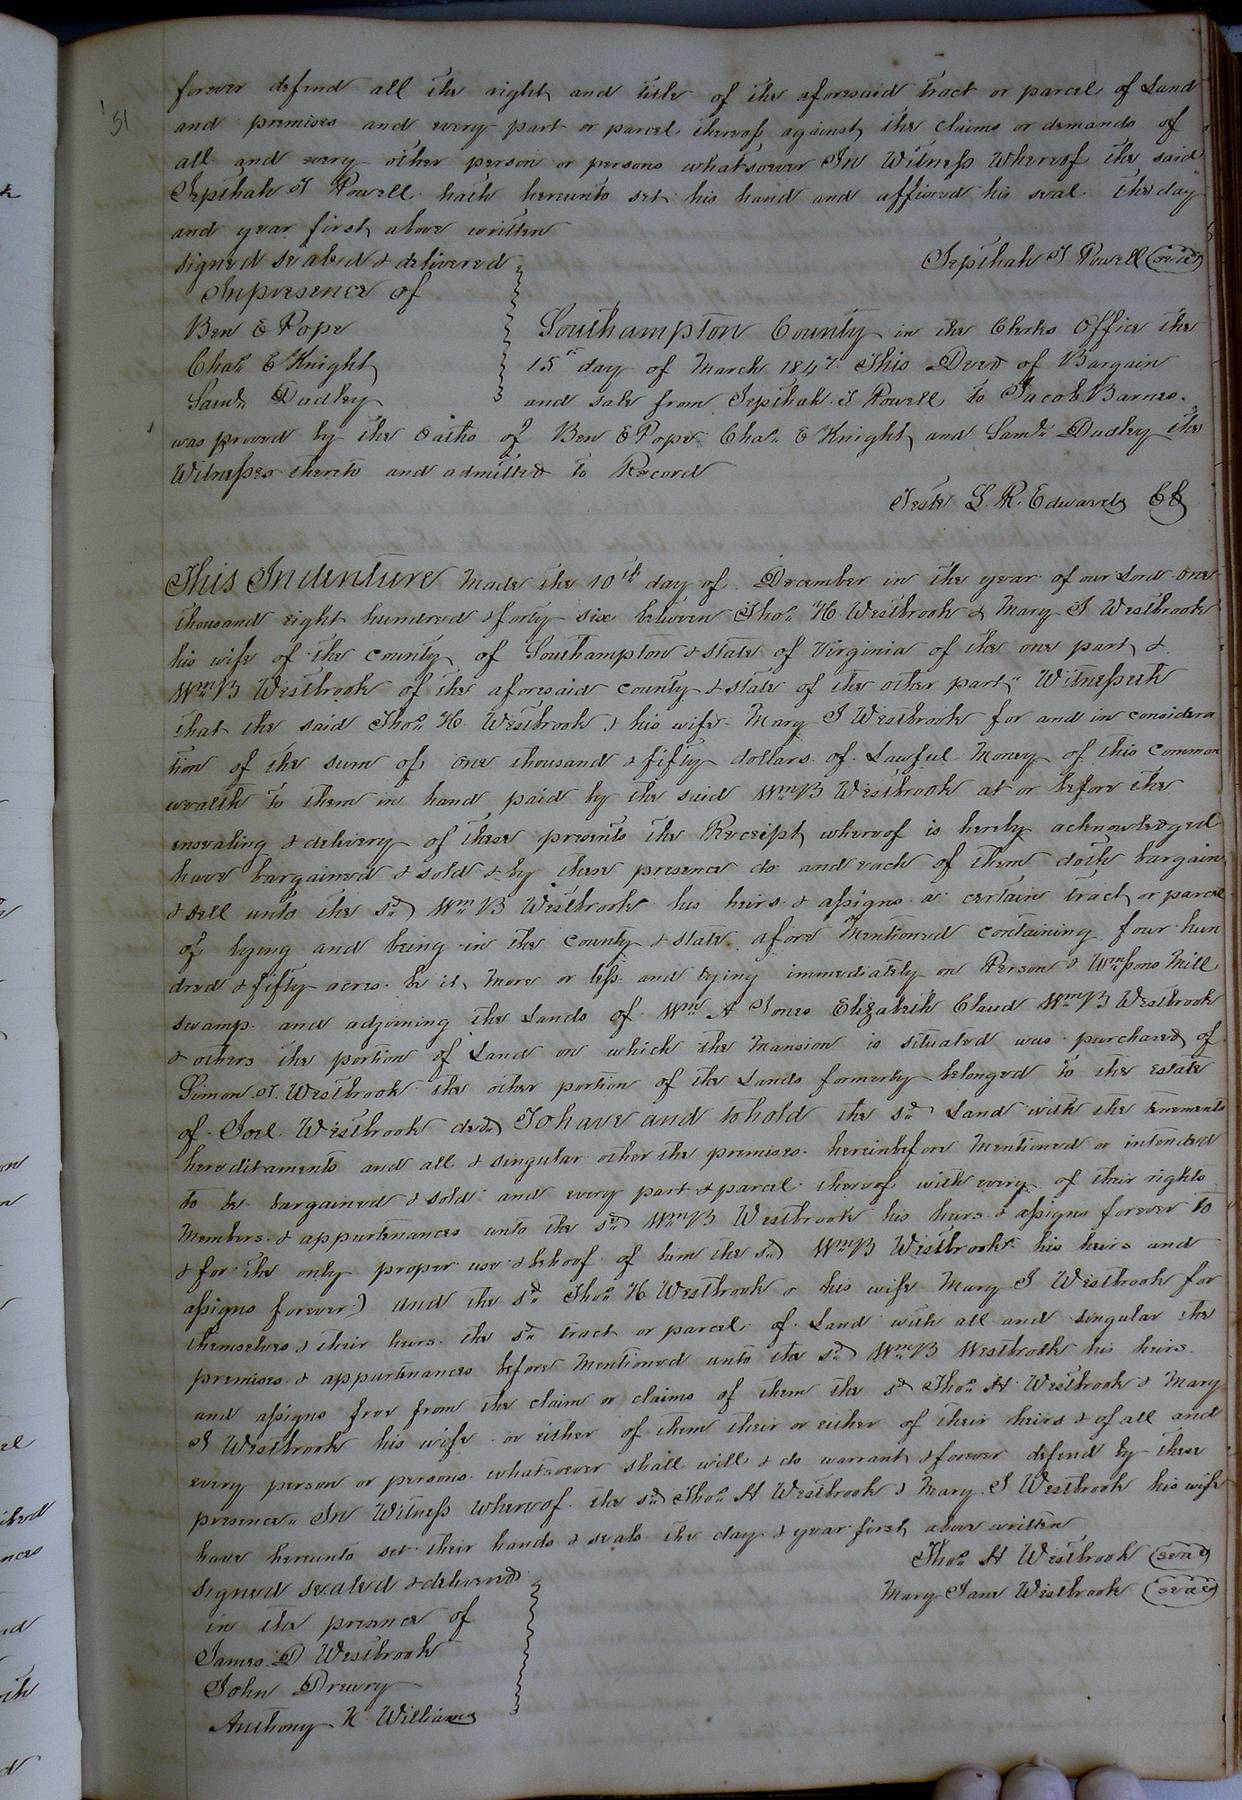 51
forever defend all the right and title of the aforesaid tract or parcel of Land
and premises and every part or parcel thereof against the claims or demands of
all and every other person or persons whatsoever In Witness Whereof the said
Jepthah J Powell hath hereunto set his hand and affixed his seal the day
and year first above written
signed sealed & delivered Jepthah J Powell (seal)
In presence of
Ben E Pope Southampton County in the Clerks Office the
Chas E Knight 15th day of March 1847. This Deed of Bargain
Saml Dudley and sale from Jepthah J Powell to Jacob Barnes.
was proved by the oaths of Ben E Pope Chas E Knight and Saml Dudley the
Witnesses thereto and admitted to Record
Teste L. R. Edwards CC
This Indenture Made the 10th day of December in the year of our Lord one
thousand eight hundred & forty six between Thos H Westbrook & Mary J Westbrook
his wife of the county of Southampton & state of Virginia of the one part &
Wm B Westbrook of the aforesaid county & state of the other part" Witnesseth
that the said Thos H. Westbrook & his wife Mary J Westbrook for and in considera
tion of the sum of one thousand & fifty dollars of Lawful Money of this common
wealth to them in hand paid by the said Wm B Westbrook at or before the
ensealing & delivery of these presents the Receipt whereof is hereby acknowledged
have bargained & sold & by these presence do and each of them doth bargain
& sell unto the sd Wm B Westbrook his heirs & assigns a certain tract or parcel
of lying and being in the county & state afore Mentioned containing four hun
dred & fifty acres be it More or less and lying immediately on Person & Wmsons Mill
swamp and adjoining the Lands of Wm A Jones Elizabeth Claud Wm B Westbrook
& others the portion of Land on which the Mansion is situated was purchased of
Simon J. Westbrook the other portion of the Lands formerly belonged to the estate
of Joel Westbrook decd To have and to hold the sd Land with the tenements
hereditaments and all & singular other the premises hereinbefore Mentioned or intended
to be bargained & sold and every part & parcel thereof with every of their rights
Members & appurtenances unto the sd Wm B Westbrook his heirs & assigns forever to
& for the only proper use & behoof of him the sd Wm B Westbrook his heirs and
assigns forever) And the sd Thos H Westbrook & his wife Mary J Westbrook for
themselves & their heirs the sd tract or parcel of Land with all and singular the
premises & appurtenances before Mentioned unto the sd Wm B Westbrook his heirs
and assigns free from the claim or claims of them the sd Thos H Westbrook & Mary
J Westbrook his wife or either of them their or either of their heirs & of all and
every person or persons whatsoever shall will & do warrant & forever defend by these
presence" In Witness whereof the sd Thos H Westbrook & Mary J Westbrook his wife
have hereunto set their hands & seals the day & year first above written
signed sealed & delivered Thos H Westbrook (seal)
in the presence of Mary Jane Westbrook (seal)
James D Westbrook
John Drewry
Anthony K Williams